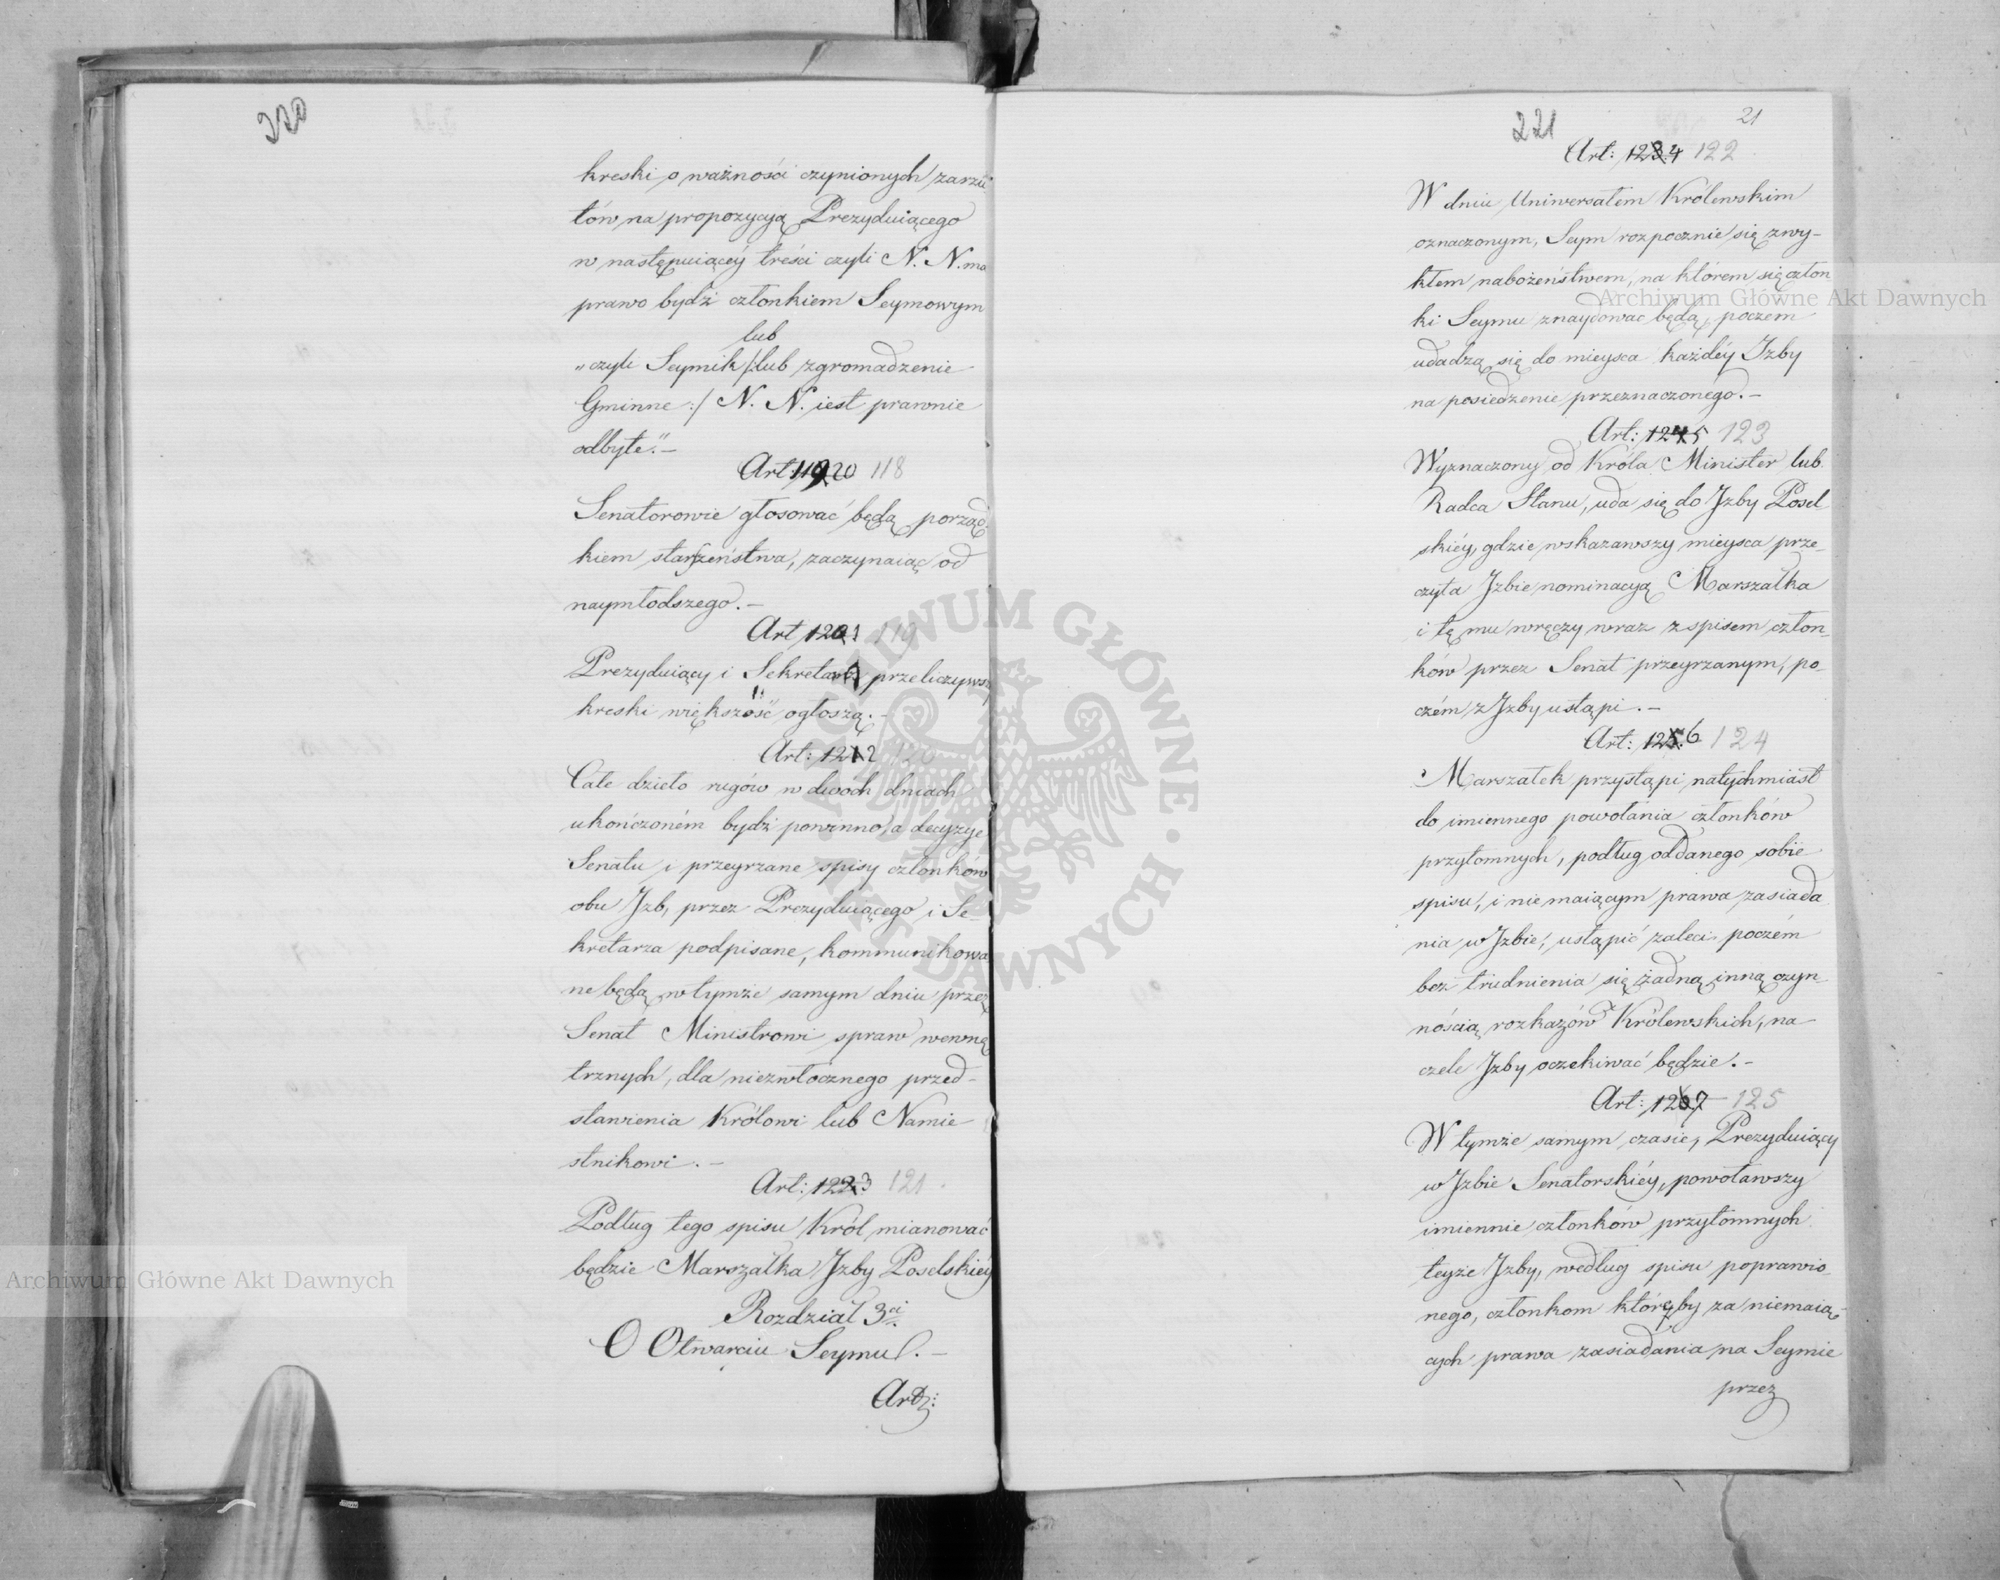 220
kreski o ważności czynionych zarzu
tów na propozycyą Prezyduiącego
w następuiącéy treści czyli N. N. ma
prawo bydź członkiem Seymowym
lub
„czyli Seymik /:lub zgromadzenie
Gminne:/ N. N. iest prawnie
odbyte."–
Art: 11920 118
Senatorowie głosować będą porząd
kiem starszeństwa, zaczynaiąc od
naymłodszego.–
Art 1201 119
Prezyduiący i Sekretarz przeliczywszy
kreski większość ogłoszą.–
Art: 1212 120
Całe dzieło rugów w dwóch dniach
ukończoném bydź powinno, a decyzye
Senatu i przeyrzane spisy członków
obu Izb, przez Prezyduiącego i Se-
kretarza podpisane, kommunikowa
ne będą w tymże samym dniu przez
Senat Ministrowi spraw wewnę
trznych, dla niezwłocznego przed-
stawienia Królowi lub Namie
stnikowi.–
Art: 1223 121
Podług tego spisu Król mianować
będzie Marszałka Izby Poselskiéy
Rozdział 3ci
O Otwarciu Seymu.–
Art:
221
21
Art: 1234 122
W dniu Uniwersałem Królewskim
oznaczonym, Seym rozpocznie się zwy-
kłem nabożeństwem, na którem się człon
ki Seymu znaydować będą, poczem
udadzą się do mieysca każdéy Izby
na posiedzenie przeznaczonego.–
Art: 1245 123
Wyznaczony od Króla Minister lub
Radca Stanu, uda się do Izby Posel
skiéy, gdzie wskazawszy mieysca prze-
czyta Izbie nominacyą Marszałka
i tę mu wręczy wraz z spisem człon-
ków przez Senat przeyrzanym, po-
czém z Izby ustąpi.–
Art: 1256 124
Marszałek przystąpi natychmiast
do imiennego powołania członków
przytomnych, podług oddanego sobie
spisu, i nie maiącym prawa zasiada
nia w Izbie, ustąpić zaleci, poczém
bez trudnienia się żadną inną czyn-
nością rozkazów Królewskich, na
czele Izby oczekiwać będzie.–
Art: 1267 125
W tymże samym czasie, Prezyduiący
w Izbie Senatorskiéy, powoławszy
imiennie członków przytomnych
teyże Izby, według spisu poprawio-
nego, członkom którzyby za niemaią-
cych prawa zasiadania na Seymie
przez
Archiwum Główne Akt Dawnych
Archiwum Główne Akt Dawnych
ARCHIWUM GŁÓWNE · AKT DAWNYCH ·